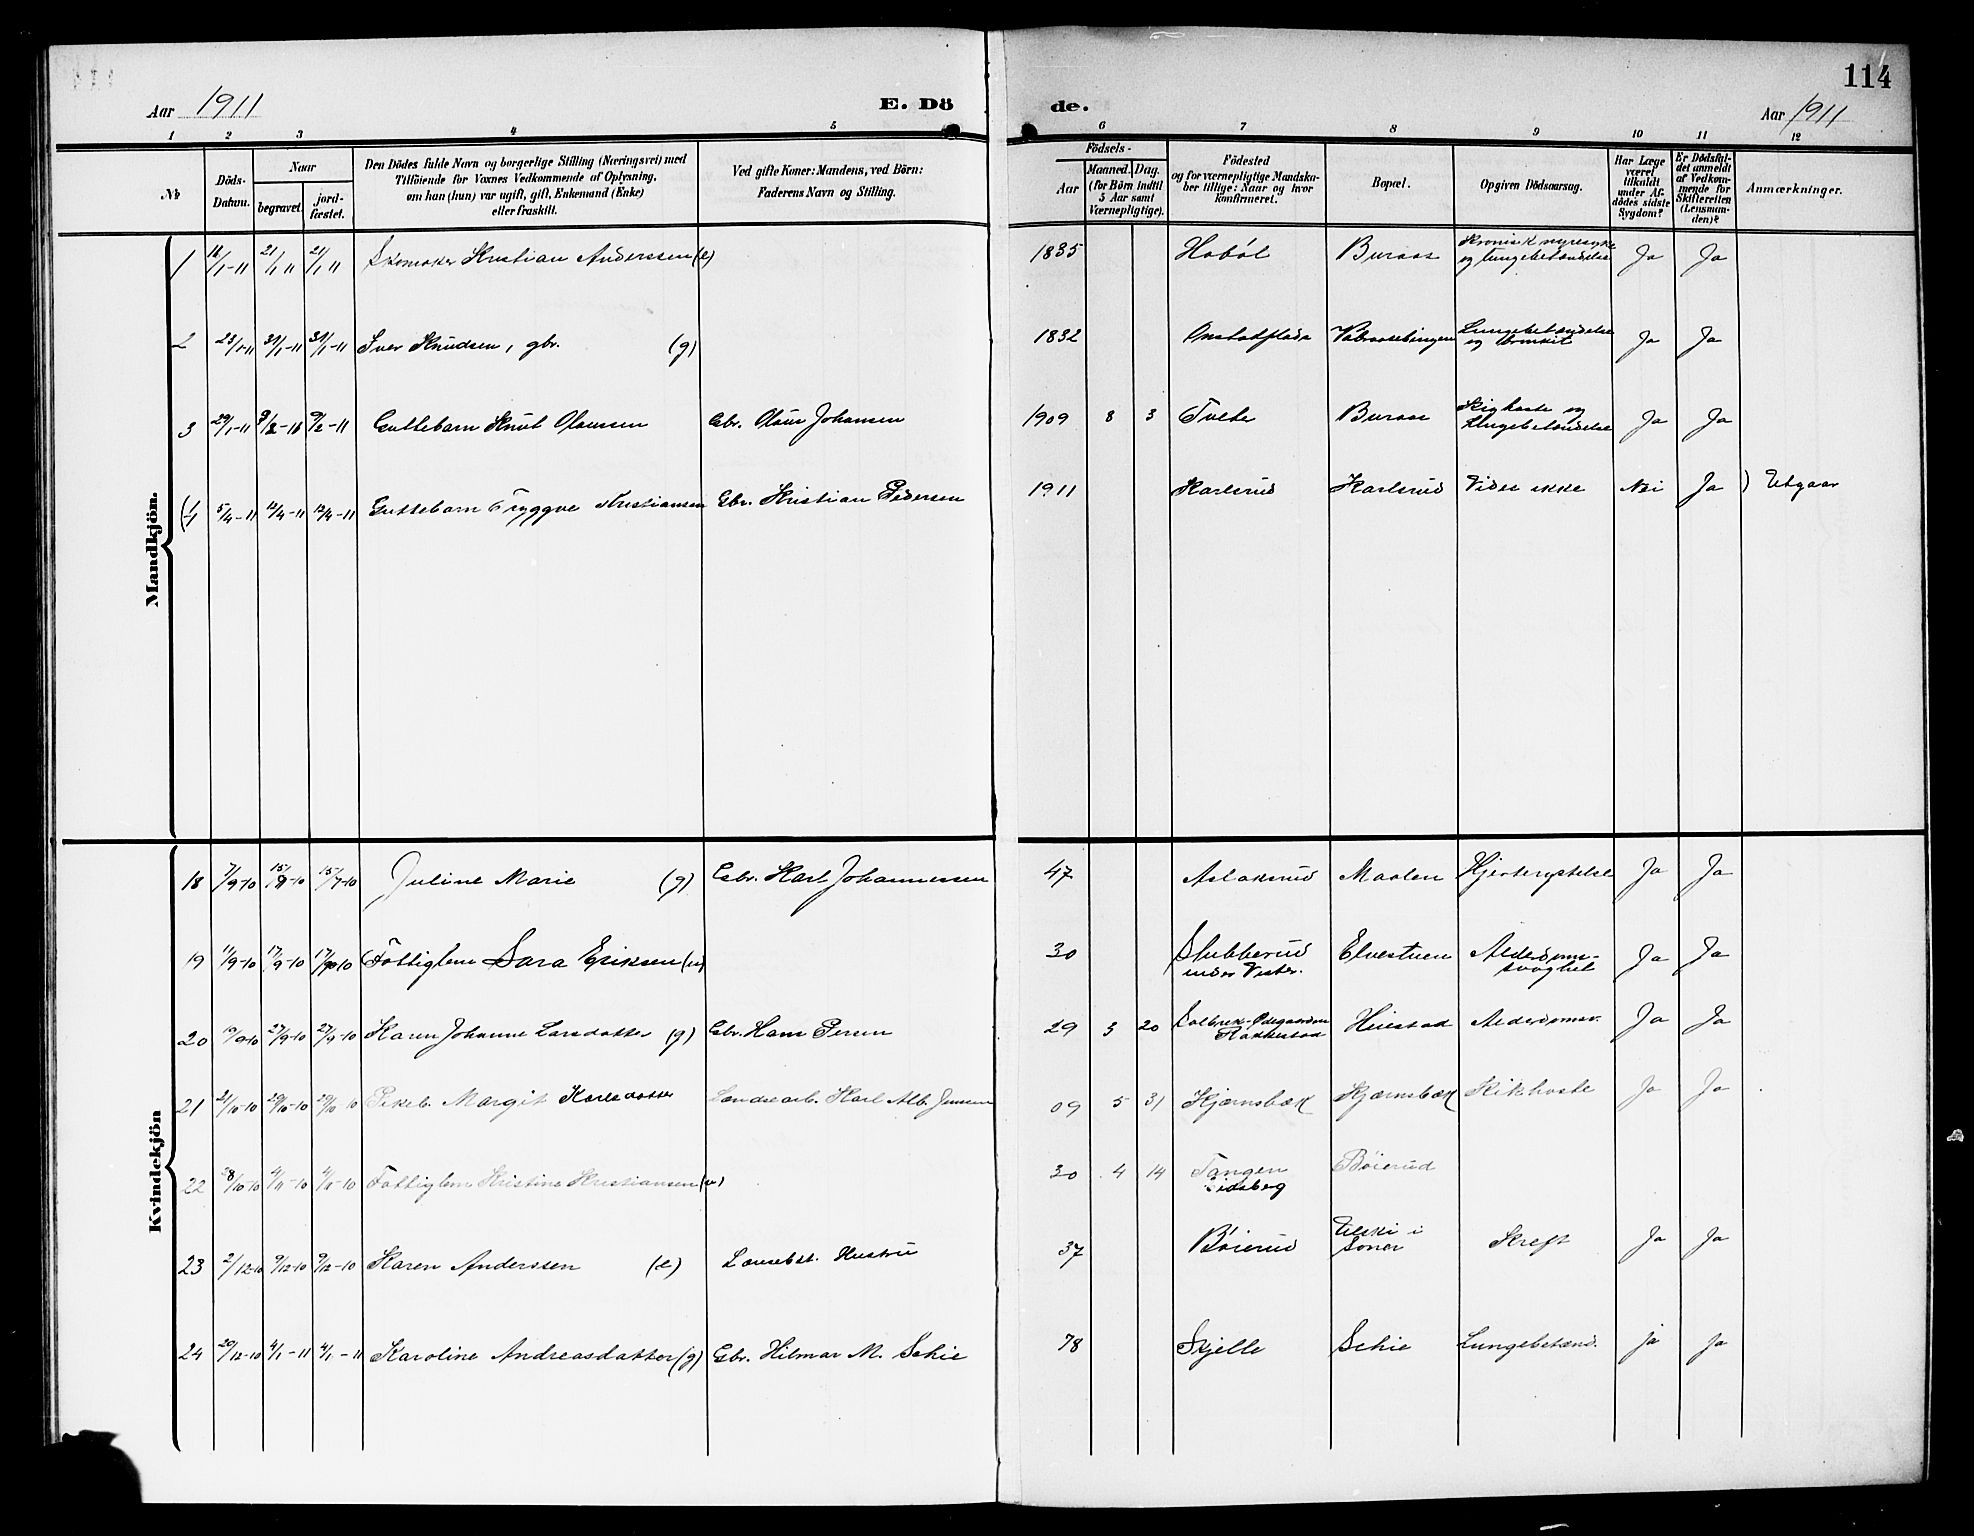 114
Aar 1911
E. Dö
de.
Aar 1911
1 2 3 4 5 6 7 8 9 10 11 12
No
Döds-Datum.
Naar
begravet.
jord-fæstet.
Den Dödes fulde Navn og borgerlige Stilling (Næringsvei) med
Tilföiende for Voxnes Vedkommende af Oplysning,
om han (hun) var ugift, gift, Enkemand (Enke)
eller fraskilt.
Ved gifte Koner: Mandens, ved Börn:
Faderens Navn og Stilling.
Födsels-
Aar
Maaned. Dag.
(for Börn indtil
5 Aar samt
Værnepligtige).
Födested
og for værnepligtige Mandska-
ber tillige: Naar og hvor
konfirmeret.
Bopæl.
Opgiven Dödsaarsag.
Har Læge
været
tilkaldt
under Af-
dödes sidste
Sygdom?
Er Dödsfal-
det anmeldt
af Vedkom-
mende for
Skifteretten
(Lensman-
den)?
Anmærkninger.
Mandkjön.
1 18/1-11 21/1 11 21/1 11 Skomaker Kristian Anderssen (e) 1835 Hobøl Buraas Kronisk nyresyke og lungebetændelse Ja Ja
2 23/1-11 31/1-11 31/1-11 Iver Knudsen, gbr. (g) 1832 Vabraatebingen Lungebetændelse og bronkit Ja Ja
3 29/1-11 9/2-11 9/2-11 Guttebarn Knut Olaussen Gbr. Olaus Johansen 1909 8 3 Tveter Buraas Kighoste og lungebetændelse Ja Ja
(4 5/4-11 12/4-11 12/4-11 Guttebarn Tryggve Kristiansen Gbr. Kristian Pedersen 1911 Karlsrud Karlsrud Vides ikke Nei Ja ) Utgaar
Kvindekjön
18 7/9-10 15/9-10 15/9-10 Juline Marie (g) Gbr. Karl Johannessen 47 Aslaksrud Maalen Hjerterystelse Ja Ja
19 11/9-10 17/9-10 17/9-10 Fattiglem Sara Eriksen (u) 30 Stubberud under Vester. Elvestuen Alderdoms-svaghet Ja Ja
20 19/9-10 27/9-10 27/9-10 Karen Johanne Larsdatter (g) Gbr. Hans Persen 29 3 20 Solbrek-Ødegaarden Rakkestad Huestad Alderdomsv. Ja Ja
21 24/10-10 29/10-10 29/10 10 Pikeb. Margit Karlsdatter Landsarb. Karl Alb. Jensen 09 5 31 Kjærnsbæk Kjærnsbæk Kikhoste Ja Ja
22 28/10-10 4/11-10 4/11-10 Fattiglem Kristine Kristiansen (u) 30 4 14 Tangen Eidsberg Bøierud
23 2/12-10 9/12-10 9/12-10 Karen Anderssen (e) Hustru 37 Bøierud Ulski i Soner Kreft Ja Ja
24 29/12-10 4/1-11 4/1-11 Karoline Andreasdatter (g) Gbr. Hilmar M. Schie 78 Skjelle Schie Lungebetænd. ja ja